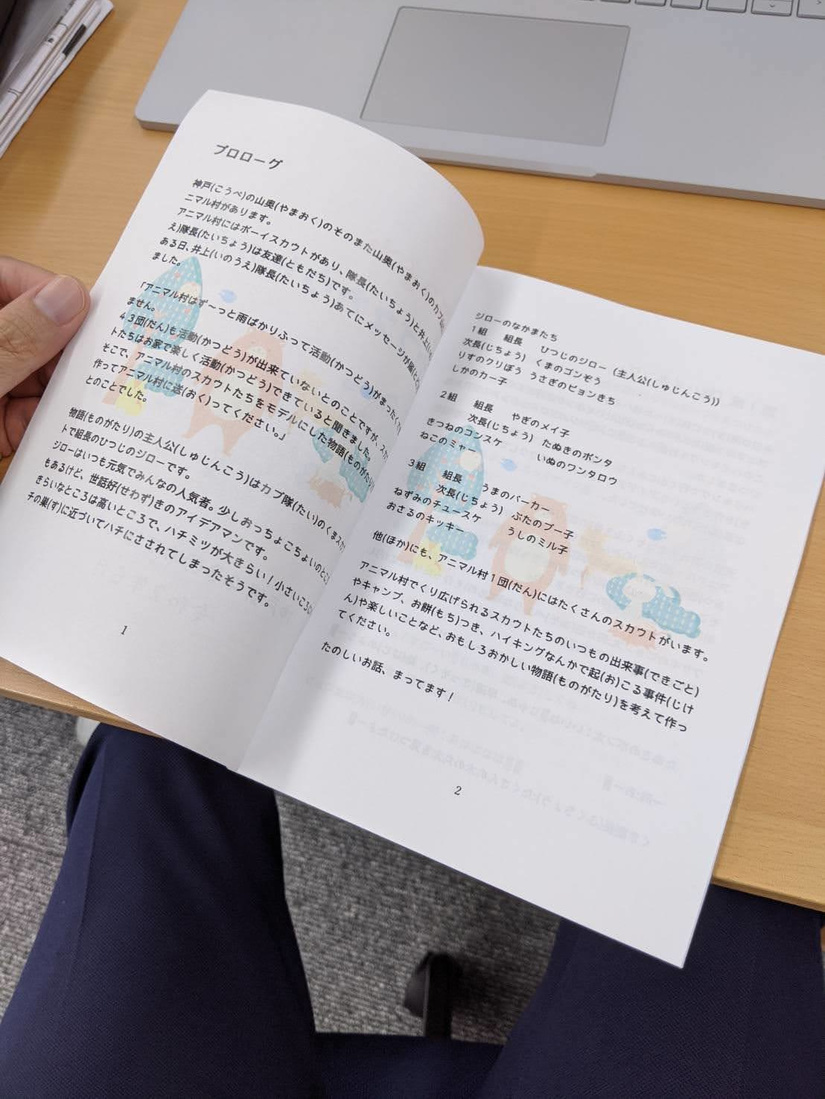 プロローグ
神戸(こうべ)の山奥(やまおく)のそのまた山奥(やまおく)のカブ
ニマル村があります。
アニマル村にはボーイスカウトがあり、隊長(たいちょう)と井上(い
え)隊長(たいちょう)は友達(ともだち)です。
ある日、井上(いのうえ)隊長(たいちょう)あてにメッセージが
ました。
「アニマル村はず～っと雨ばかりふって活動(かつどう)がまった
ません。
43団(だん)も活動(かつどう)が出来ていないとのことですが、スカ
トたちはお家で楽しく活動(かつどう)できていると聞きました。
そこで、アニマル村のスカウトたちをモデルにした物語(ものがたり
作ってアニマル村に送(おく)ってください。」
とのことでした。
物語(ものがたり)の主人公(しゅじんこう)はカブ隊(たい)のくまスカ
トで組長のひつじのジローです。
ジローはいつも元気でみんなの人気者。少しおっちょこちょいのとこ
もあるけど、世話好(せわず)きのアイデアマンです。
きらいなところは高いところで、ハチミツが大きらい！小さいころ
チの巣(す)に近づいてハチにさされてしまったそうです。
1
ジローのなかまたち
1組 組長 ひつじのジロー（主人公(しゅじんこう)）
次長(じちょう) くまのゴンぞう
りすのクリぼう うさぎのピョンきち
しかのカー子
2組 組長 やぎのメイ子
次長(じちょう) たぬきのポンタ
きつねのコンスケ いぬのワンタロウ
ねこのミャー
3組 組長 うまのパーカー
次長(じちょう) ぶたのブー子
ねずみのチュースケ うしのミル子
おさるのキッキー
他(ほか)にも、アニマル村1団(だん)にはたくさんのスカウトがいます。
アニマル村でくり広げられるスカウトたちのいつもの出来事(できごと)
やキャンプ、お餅(もち)つき、ハイキングなんかで起(お)こる事件(じけ
ん)や楽しいことなど、おもしろおかしい物語(ものがたり)を考えて作っ
てください。
たのしいお話、まってます！
2